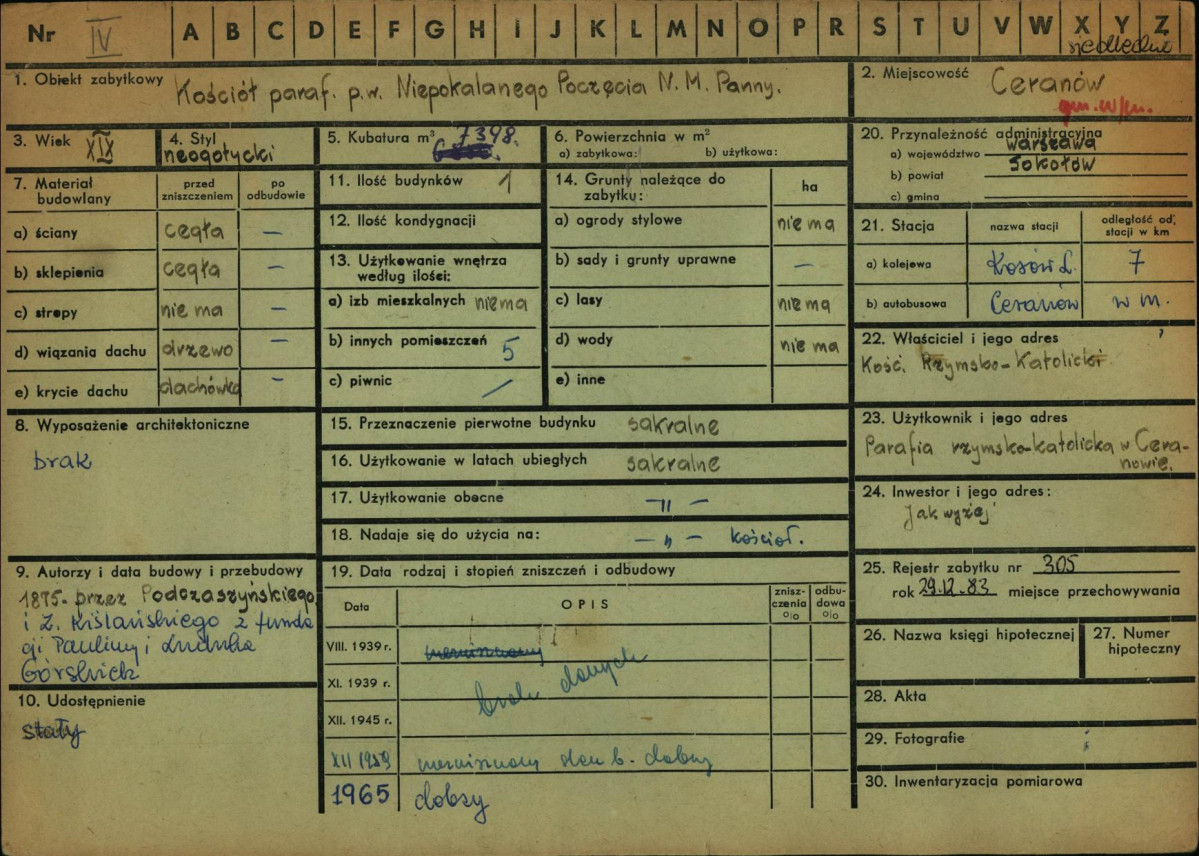 Nr IV A B C D E F G H I J K L M N O P R S T U V W X Y Z
siedleckie
1. Obiekt zabytkowy Kościół paraf. p.w. Niepokalanego Poczęcia N. M. Panny.
2. Miejscowość Ceranów
gm. w/m.
3. Wiek XIX
4. Styl neogotycki
5. Kubatura m³ 7398.
6. Powierzchnia w m²
a) zabytkowa: b) użytkowa:
20. Przynależność administracyjna
a) województwo Warszawa
b) powiat Sokołów
c) gmina
7. Materiał budowlany
przed zniszczeniem
po odbudowie
a) ściany cegła —
b) sklepienia cegła —
c) stropy nie ma —
d) wiązania dachu drzewo —
e) krycie dachu dachówka —
11. Ilość budynków 1
12. Ilość kondygnacji
13. Użytkowanie wnętrza
według ilości:
a) izb mieszkalnych nie ma
b) innych pomieszczeń 5
c) piwnic /
14. Grunty należące do
zabytku:
ha
a) ogrody stylowe nie ma
b) sady i grunty uprawne —
c) lasy nie ma
d) wody nie ma
e) inne
21. Stacja
nazwa stacji
odległość od stacji w km
a) kolejowa Kosów L. 7
b) autobusowa Ceranów w m.
22. Właściciel i jego adres
Kość. Rzymsko-Katolicki
8. Wyposażenie architektoniczne
brak
15. Przeznaczenie pierwotne budynku sakralne
16. Użytkowanie w latach ubiegłych sakralne
17. Użytkowanie obecne — " —
18. Nadaje się do użycia na: — " — kościoł.
23. Użytkownik i jego adres
Parafia rzymsko-katolicka w Cera-
nowie.
24. Inwestor i jego adres:
Jak wyżej
9. Autorzy i data budowy i przebudowy
1875 - przez Podczaszyńskiego
i Z. Kiślańskiego z funda
cji Pauliny i Ludwika
Górskich
10. Udostępnienie
stały
19. Data rodzaj i stopień zniszczeń i odbudowy
Data
OPIS
znisz-
czenia
%
odbu-
dowa
%
VIII. 1939 r.
XI. 1939 r. brak danych
XII. 1945 r.
XII 1959 niezniszczony stan b. dobry
1965 dobry
25. Rejestr zabytku nr 305
rok 29.12.83 miejsce przechowywania
26. Nazwa księgi hipotecznej
27. Numer
hipoteczny
28. Akta
29. Fotografie
30. Inwentaryzacja pomiarowa